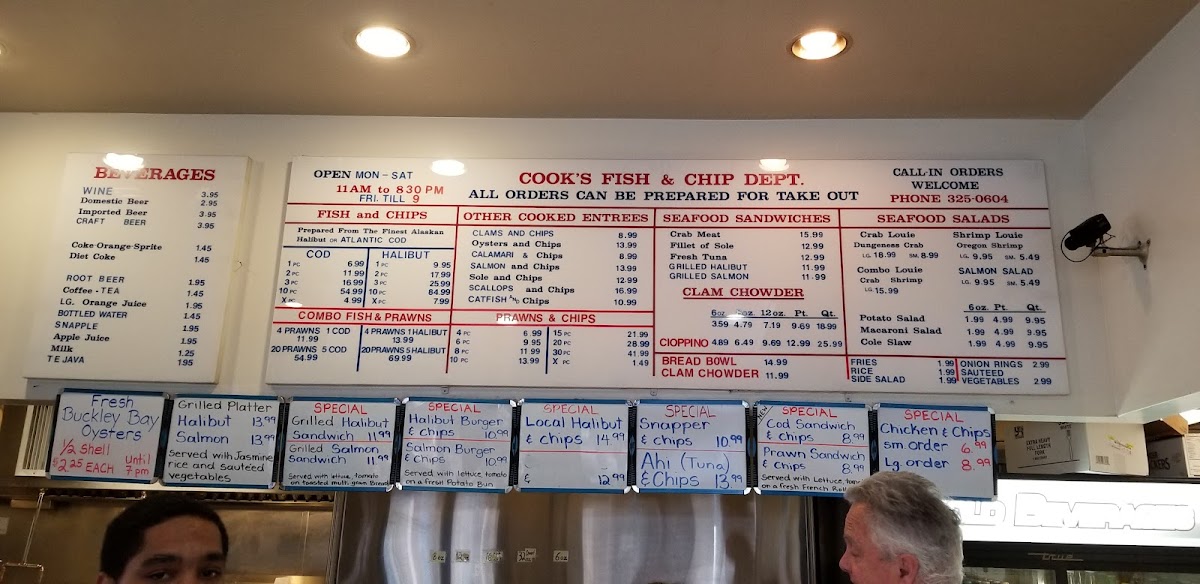 BEVERAGES
WINE 3.95
Domestic Beer 2.95
Imported Beer 3.95
CRAFT BEER 3.95
Coke-Orange-Sprite 1.45
Diet Coke 1.45
ROOT BEER 1.95
Coffee - TEA 1.45
LG. Orange Juice 1.95
BOTTLED WATER 1.45
SNAPPLE 1.95
Apple Juice 1.95
Milk 1.25
TEJAVA 1.95
OPEN MON - SAT
11AM to 830 PM
FRI. TILL 9
COOK'S FISH & CHIP DEPT.
ALL ORDERS CAN BE PREPARED FOR TAKE OUT
CALL-IN ORDERS
WELCOME
PHONE 325-0604
FISH and CHIPS
Prepared From The Finest Alaskan
Halibut OR ATLANTIC COD
COD
1 PC 6.99
2 PC 11.99
3 PC 16.99
10 PC 54.99
X PC 4.99
HALIBUT
1 PC 9.95
2 PC 17.99
3 PC 25.99
10 PC 84.99
X PC 7.99
COMBO FISH & PRAWNS
4 PRAWNS 1 COD
11.99
20 PRAWNS 5 COD
54.99
4 PRAWNS 1 HALIBUT
13.99
20 PRAWNS 5 HALIBUT
69.99
OTHER COOKED ENTREES
CLAMS AND CHIPS 8.99
Oysters and Chips 13.99
CALAMARI & Chips 8.99
SALMON and Chips 13.99
Sole and Chips 12.99
SCALLOPS and Chips 16.99
CATFISH AND Chips 10.99
PRAWNS & CHIPS
4 PC 6.99
6 PC 9.95
8 PC 11.99
10 PC 13.99
15 PC 21.99
20 PC 28.99
30 PC 41.99
X PC 1.49
SEAFOOD SANDWICHES
Crab Meat 15.99
Fillet of Sole 12.99
Fresh Tuna 12.99
GRILLED HALIBUT 11.99
GRILLED SALMON 11.99
CLAM CHOWDER
6oz. 8oz. 12oz. Pt. Qt.
3.59 4.79 7.19 9.69 18.99
CIOPPINO 4.89 6.49 9.69 12.99 25.99
BREAD BOWL 14.99
CLAM CHOWDER 11.99
SEAFOOD SALADS
Crab Louie
Dungeness Crab
LG. 18.99 SM. 8.99
Combo Louie
Crab Shrimp
LG. 15.99
Shrimp Louie
Oregon Shrimp
LG. 9.95 SM. 5.49
SALMON SALAD
LG. 9.95 SM. 5.49
6oz. Pt. Qt.
Potato Salad 1.99 4.99 9.95
Macaroni Salad 1.99 4.99 9.95
Cole Slaw 1.99 4.99 9.95
FRIES 1.99
RICE 1.99
SIDE SALAD 1.99
ONION RINGS 2.99
SAUTEED
VEGETABLES 2.99
Fresh
Buckley Bay
Oysters
1/2 Shell
$2.25 EACH
until
7 pm
Grilled Platter
Halibut 13.99
Salmon 13.99
Served with Jasmine
rice and sauteed
vegetables
SPECIAL
Grilled Halibut
Sandwich 11.99
Grilled Salmon
Sandwich 11.99
on toasted multi grain Bread
SPECIAL
Halibut Burger
& chips 10.99
Salmon Burger
& chips 10.99
Served with lettuce tomato
on a fresh Potato Bun
SPECIAL
Local Halibut
& chips 14.99
& 12.99
SPECIAL
Snapper
& chips 10.99
Ahi (Tuna)
& Chips 13.99
NEW
SPECIAL
Cod Sandwich
& chips 8.99
Prawn Sandwich
& Chips 8.99
Served with Lettuce,
on a fresh French Roll
SPECIAL
Chicken & Chips
sm order 6.99
Lg order 8.99
EXTRA HEAVY
FULL LENGTH
COLD BEVERAGES
True